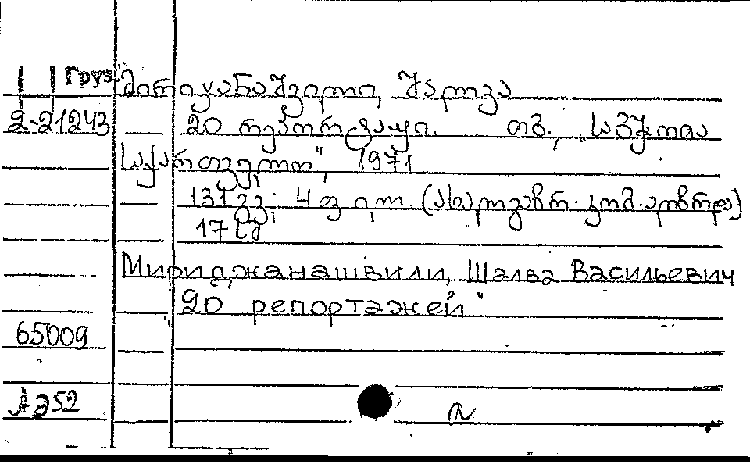 Груз.
მირიჯანაშვილი, შალვა
2-21243
20 რეპორტაჟი. თბ., „საბჭოთა
საქართველო", 1971
137 გვ; 4 ფ. ილ. (ახალგაზრ. კომ.
17 სმ
Мириджанашвили, Шалва Васильевич
20 репортажей
65009